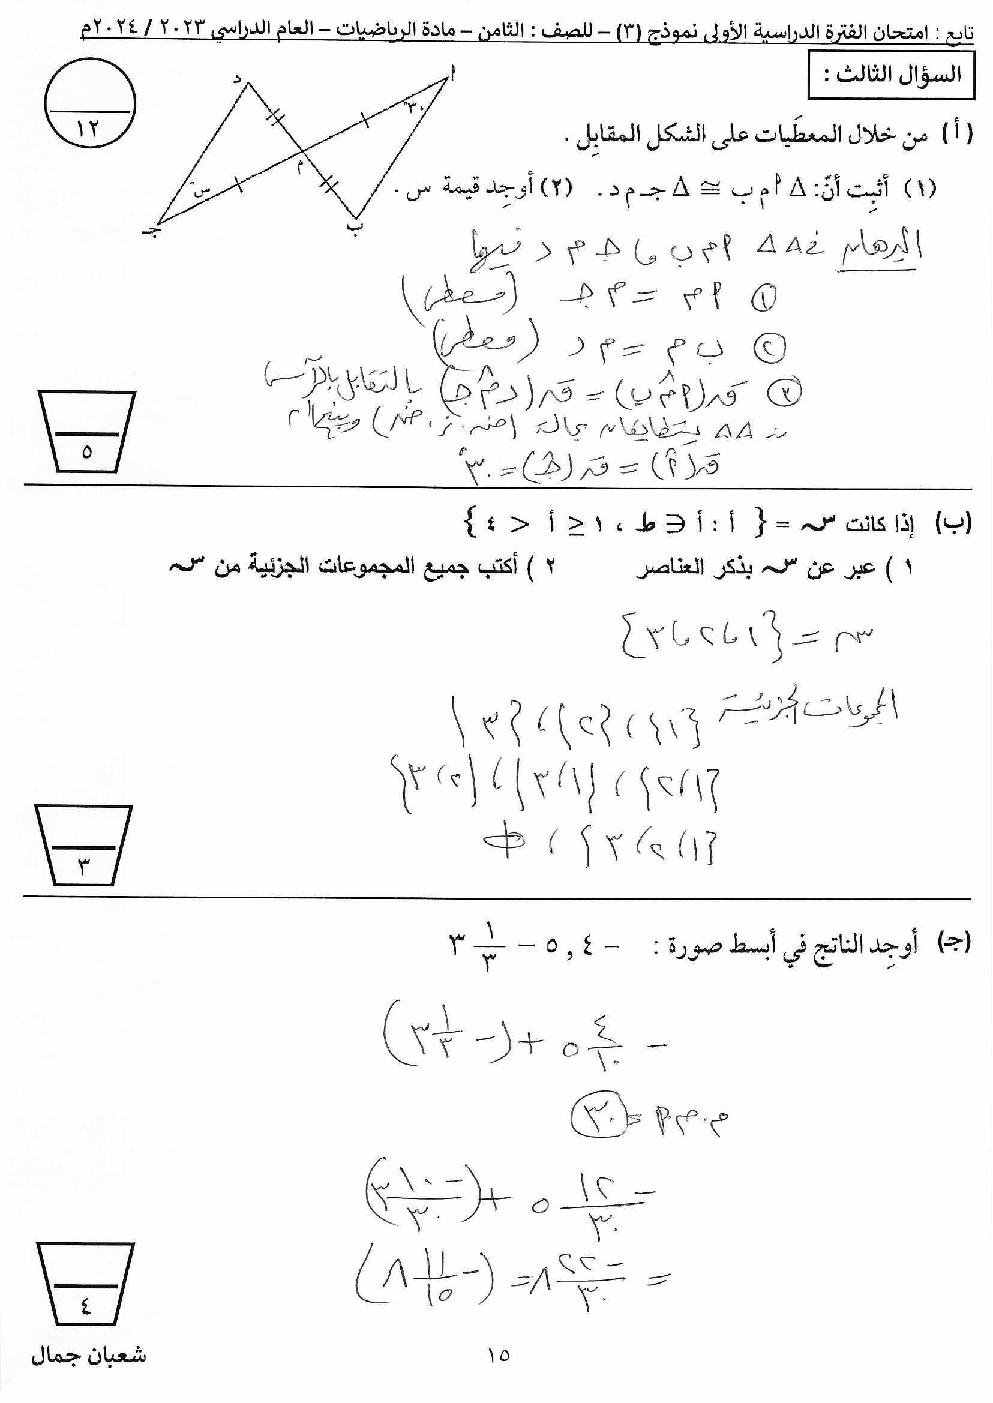 تابع : امتحان الفترة الدراسية الأولى نموذج (٣) – للصف : الثامن – مادة الرياضيات – العام الدراسي ٢٠٢٣ / ٢٠٢٤م
السؤال الثالث :
١٢
أ
د
٣٠°
م
س°
جـ
ب
(أ) من خلال المعطَيات على الشكل المقابِل .
(١) أثبِت أنّ: Δ أ م ب ≅ Δ جـ م د . (٢) أوجِد قيمة س .
البرهان في ΔΔ أ م ب ، جـ م د فيهما
① أ م = م جـ (معطى)
② ب م = م د (معطى)
③ ق(أ م̂ ب) = ق(د م̂ جـ) بالتقابل بالرأس
∴ ΔΔ يتطابقان بحالة (ض . ز . ض) وينتج أن
ق(أ̂) = ق(جـ̂) = ٣٠°
٥
(ب) إذا كانت س = { أ : أ ∈ ط ، ١ ≤ أ < ٤ }
١ ) عبر عن س بذكر العناصر ٢ ) أكتب جميع المجموعات الجزئية من س
س = {١ ، ٢ ، ٣}
المجموعات الجزئية {١} ، {٢} ، {٣}
{١ ، ٢} ، {١ ، ٣} ، {٢ ، ٣}
{١ ، ٢ ، ٣} ، Φ
٣
(جـ) أوجِد الناتج في أبسط صورة : – ٤ , ٥ – ٣ ١/٣
– ٥ ٤/١٠ + (– ٣ ١/٣)
م.م.أ = ٣٠
– ٥ ١٢/٣٠ + (– ٣ ١٠/٣٠)
= – ٨ ٢٢/٣٠ = (– ٨ ١١/١٥)
٤
١٥
شعبان جمال